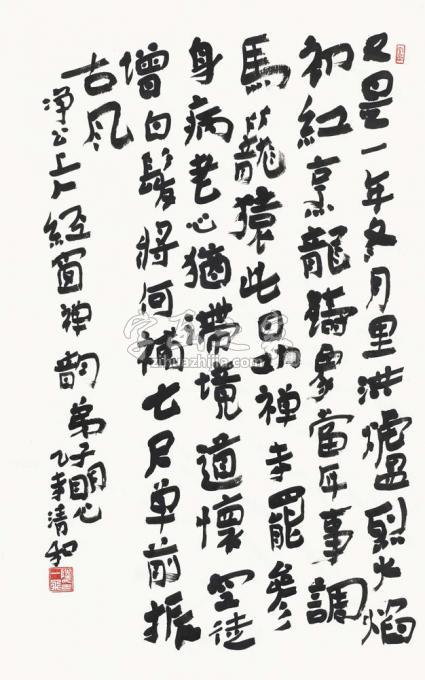 又是一年冬月里洪爐烈火焰
初紅烹龍鑄象當年事調
馬籠猿此日功禪寺罷參
身病老心猶帶境道懷空徒
增白髮將何補七尺單前振
古風
淨公上人經窗禪韵弟子明心清和
zihuazhijia.com